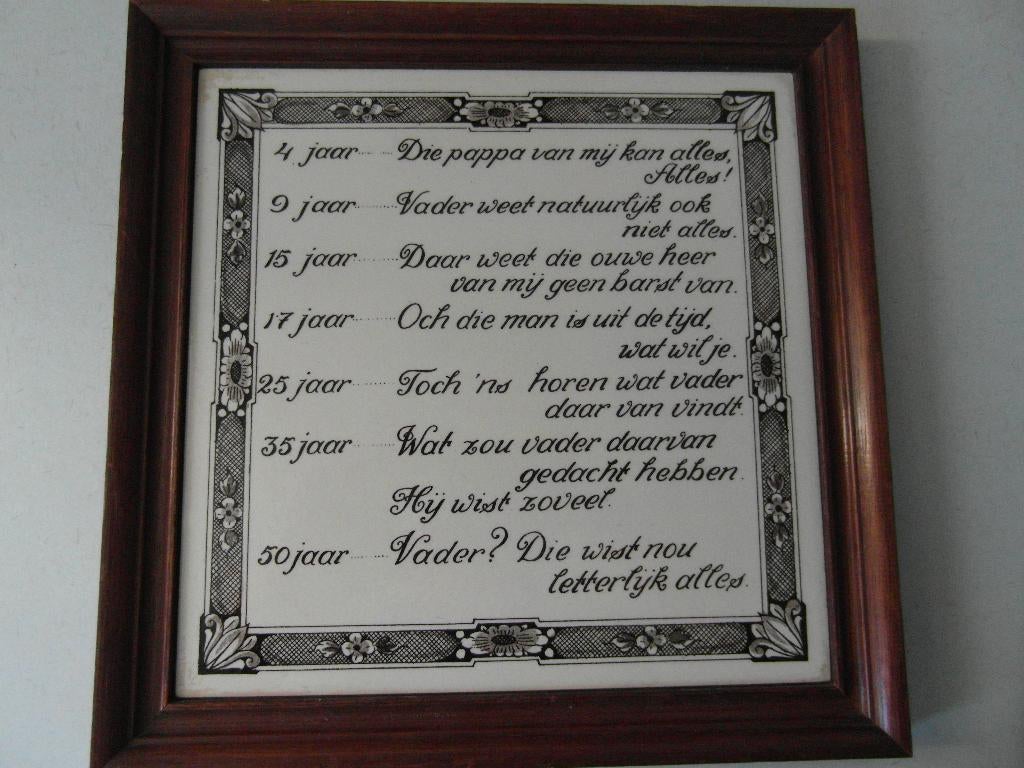 4 jaar ...... Die pappa van mij kan alles,
Alles!
9 jaar ...... Vader weet natuurlijk ook
niet alles.
15 jaar ...... Daar weet die ouwe heer
van mij geen barst van.
17 jaar ...... Och die man is uit de tijd,
wat wil je.
25 jaar ...... Toch 'ns horen wat vader
daar van vindt.
35 jaar ...... Wat zou vader daarvan
gedacht hebben.
Hij wist zoveel.
50 jaar ...... Vader? Die wist nou
letterlijk alles.